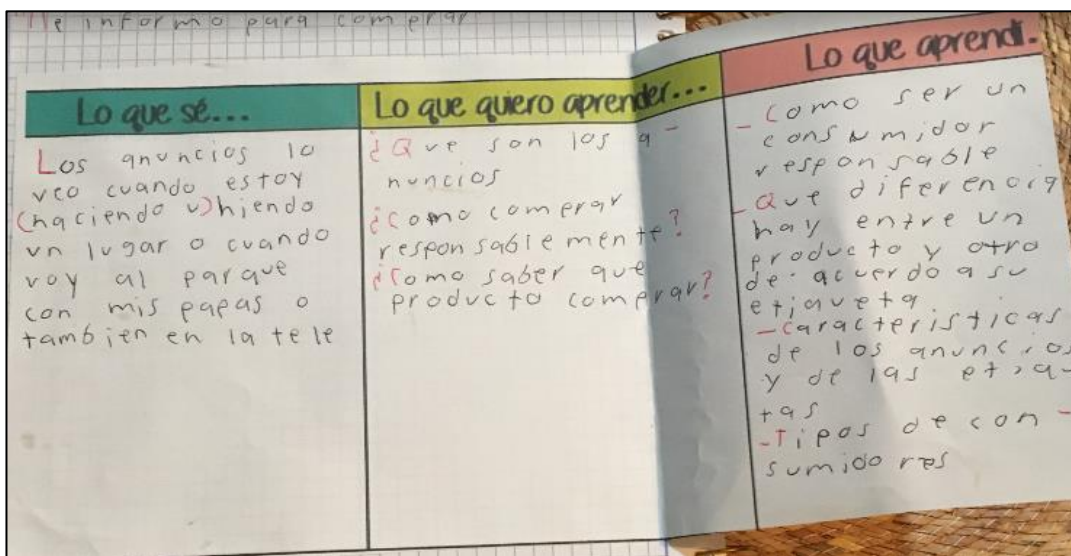 Me informo para comprar
Lo que sé...
Los anuncios lo
veo cuando estoy
(haciendo v)hiendo
un lugar o cuando
voy al parque
con mis papas o
tambien en la tele
Lo que quiero aprender...
¿Que son los a-
nuncios
¿Como comprar
responsablemente?
¿Como saber que
producto comprar?
Lo que aprendí.
- Como ser un
consumidor
responsable
- Que diferencia
hay entre un
producto y otro
de acuerdo a su
etiqueta
- Caracteristicas
de los anuncios
y de las etiqu
tas
- Tipos de con-
sumidores